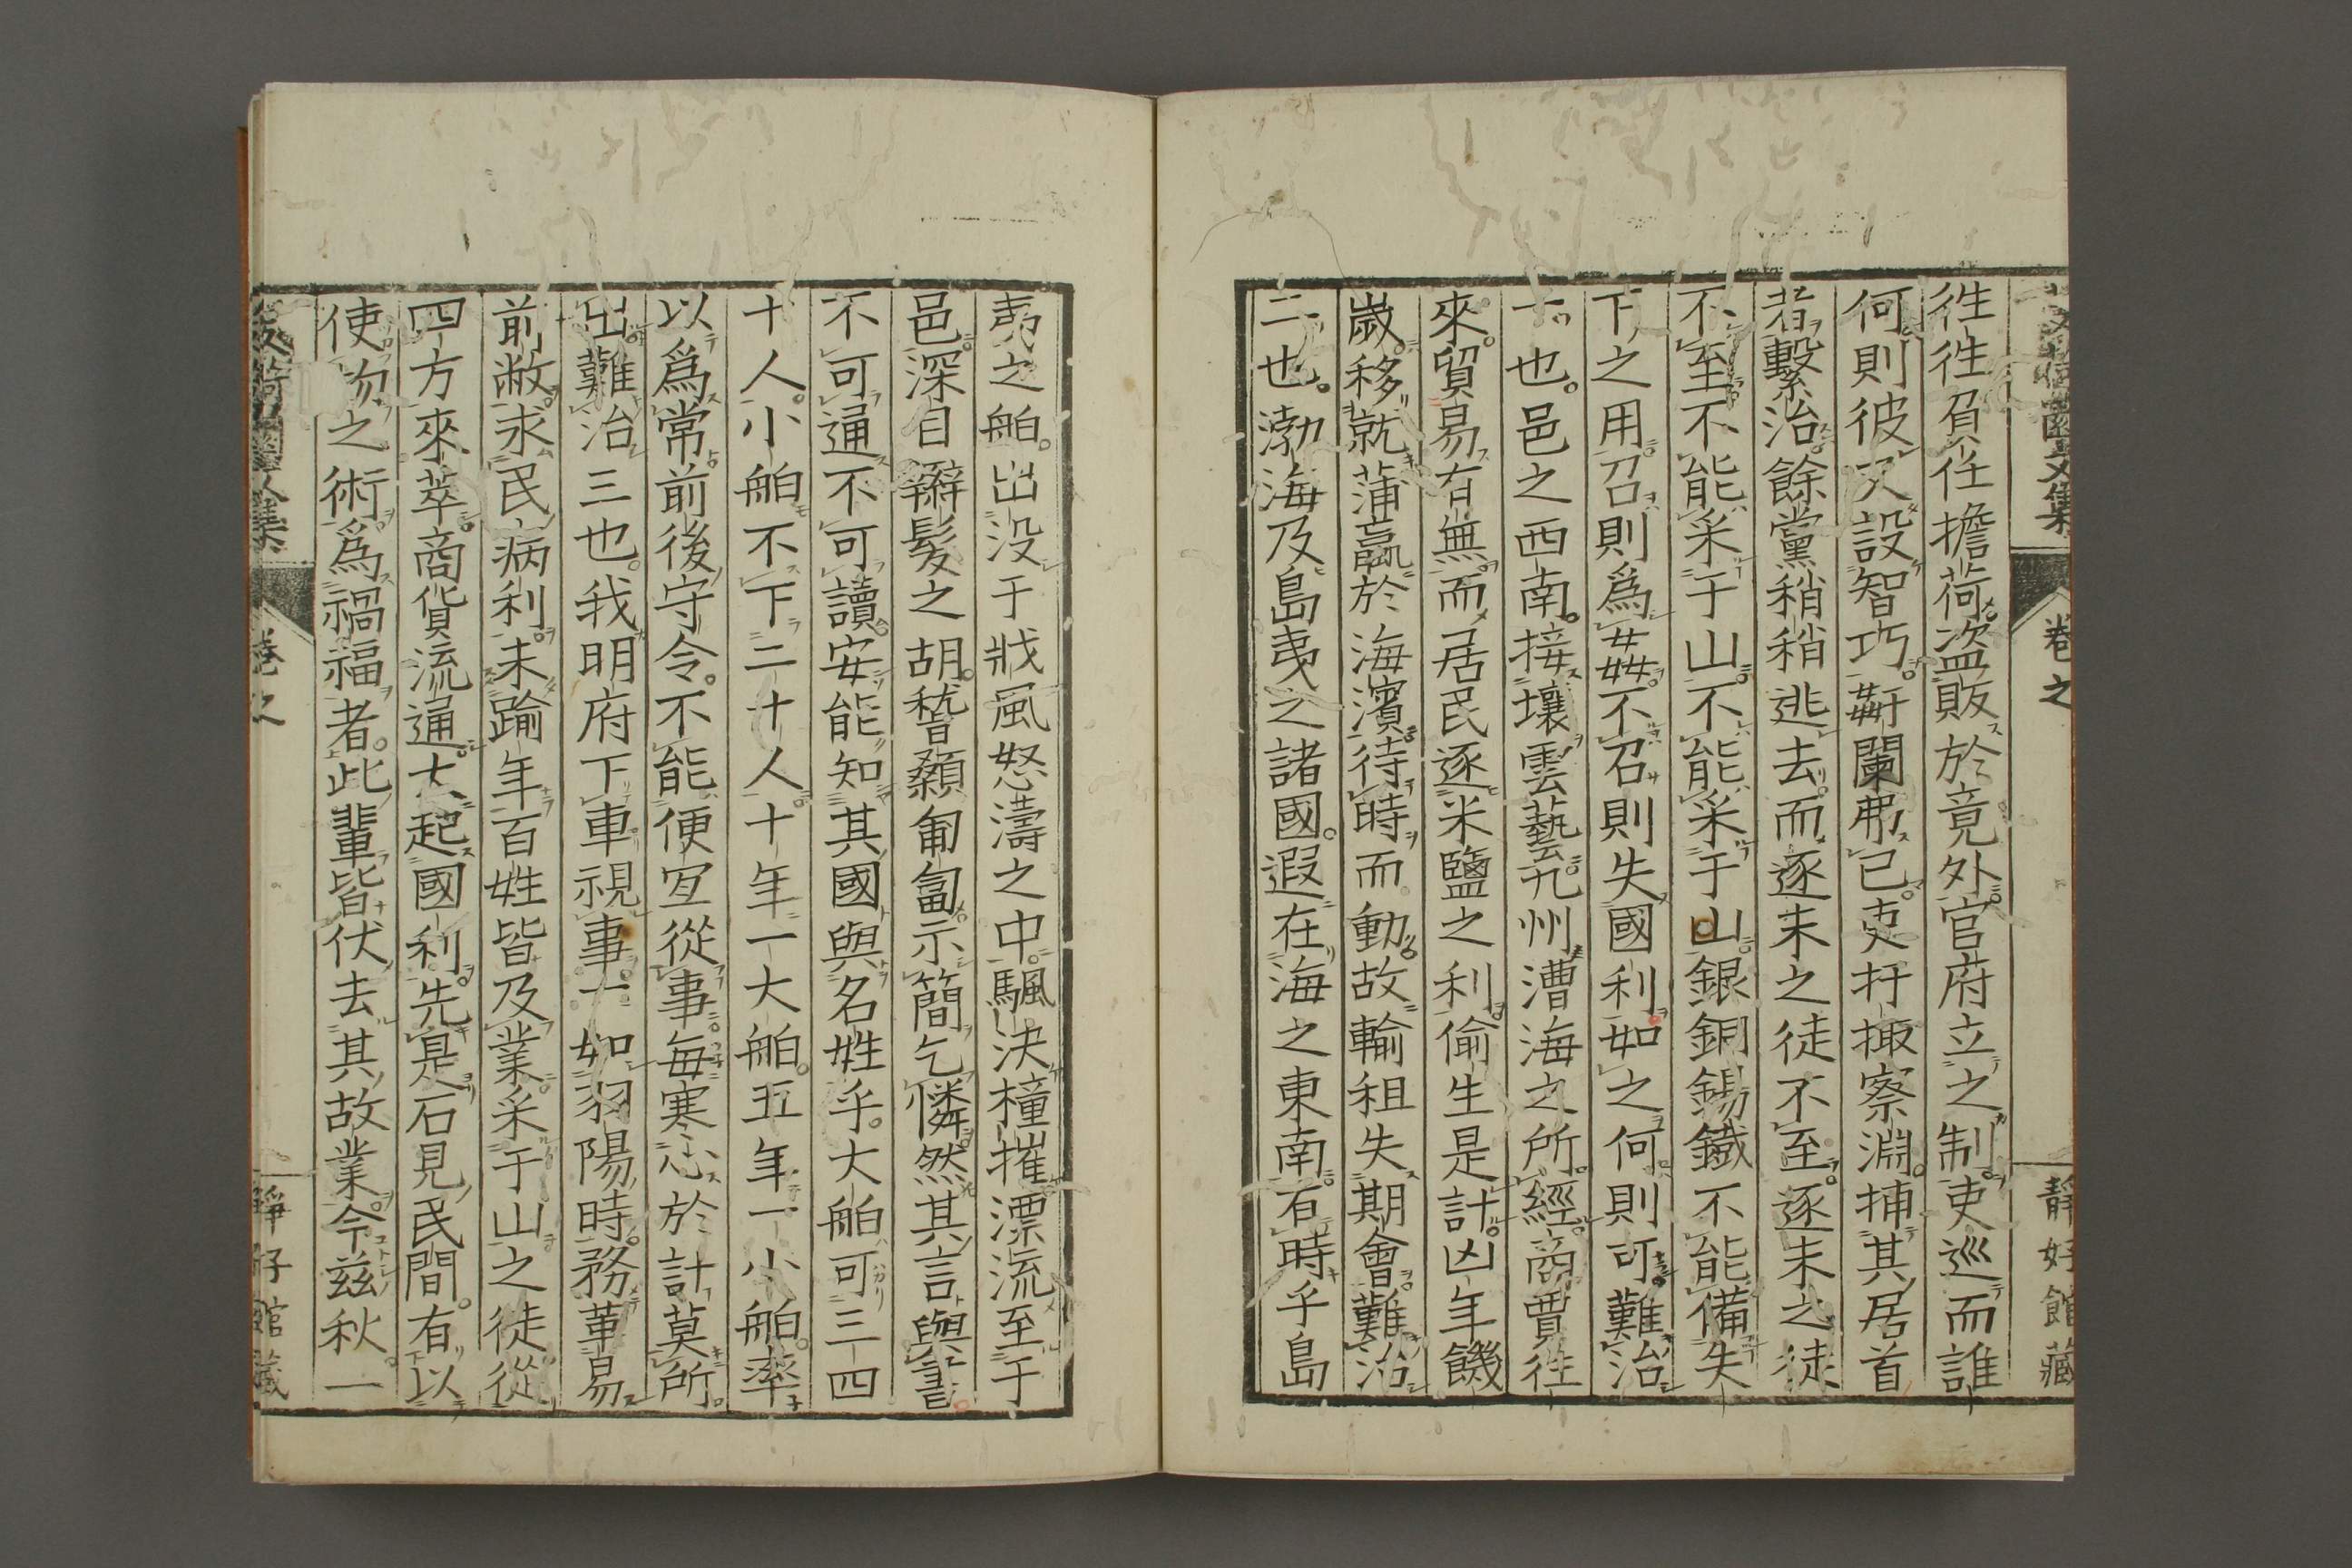 卷之
靜好館藏
徃徃負任擔荷盗販於竟外官府立之制吏巡而誰
何則彼又設智巧姧闌弗已吏扞掫察淵捕其居首
者繫治餘黨稍稍逃去而逐末之徒不至逐末之徒
不至不能采于山不能采于山銀銅錫鐵不能備失
下之用召則爲姦不召則失國利如之何則可難治
一也邑之西南接壤雲藝九州漕海之所經商賈徃
來貿易有無而居民逐米鹽之利偷生是計凶年饑
歲移就蒲蠃於海濱待時而動故輸租失期會難治
二也渤海及島夷之諸國遐在海之東南有時乎島
夷之舶出没于戕風怒濤之中颿決橦摧漂流至于
邑深目辮髮之胡稽顙匍匐示簡乞憐然其言與書
不可通不可讀安能知其國與名姓乎大舶可三四
十人小舶不下二十人十年一大舶五年一小舶率
以爲常前後守令不能便宜從事每寒心於計莫所
出難治三也我明府下車視事一如羽陽時務革易
前敝求民病利未踰年百姓皆及業采于山之徒從
四方來萃商貨流通大起國利先是石見民間有以
使物之術爲禍福者此輩皆伏去其故業今茲秋一
卷之
靜好館藏